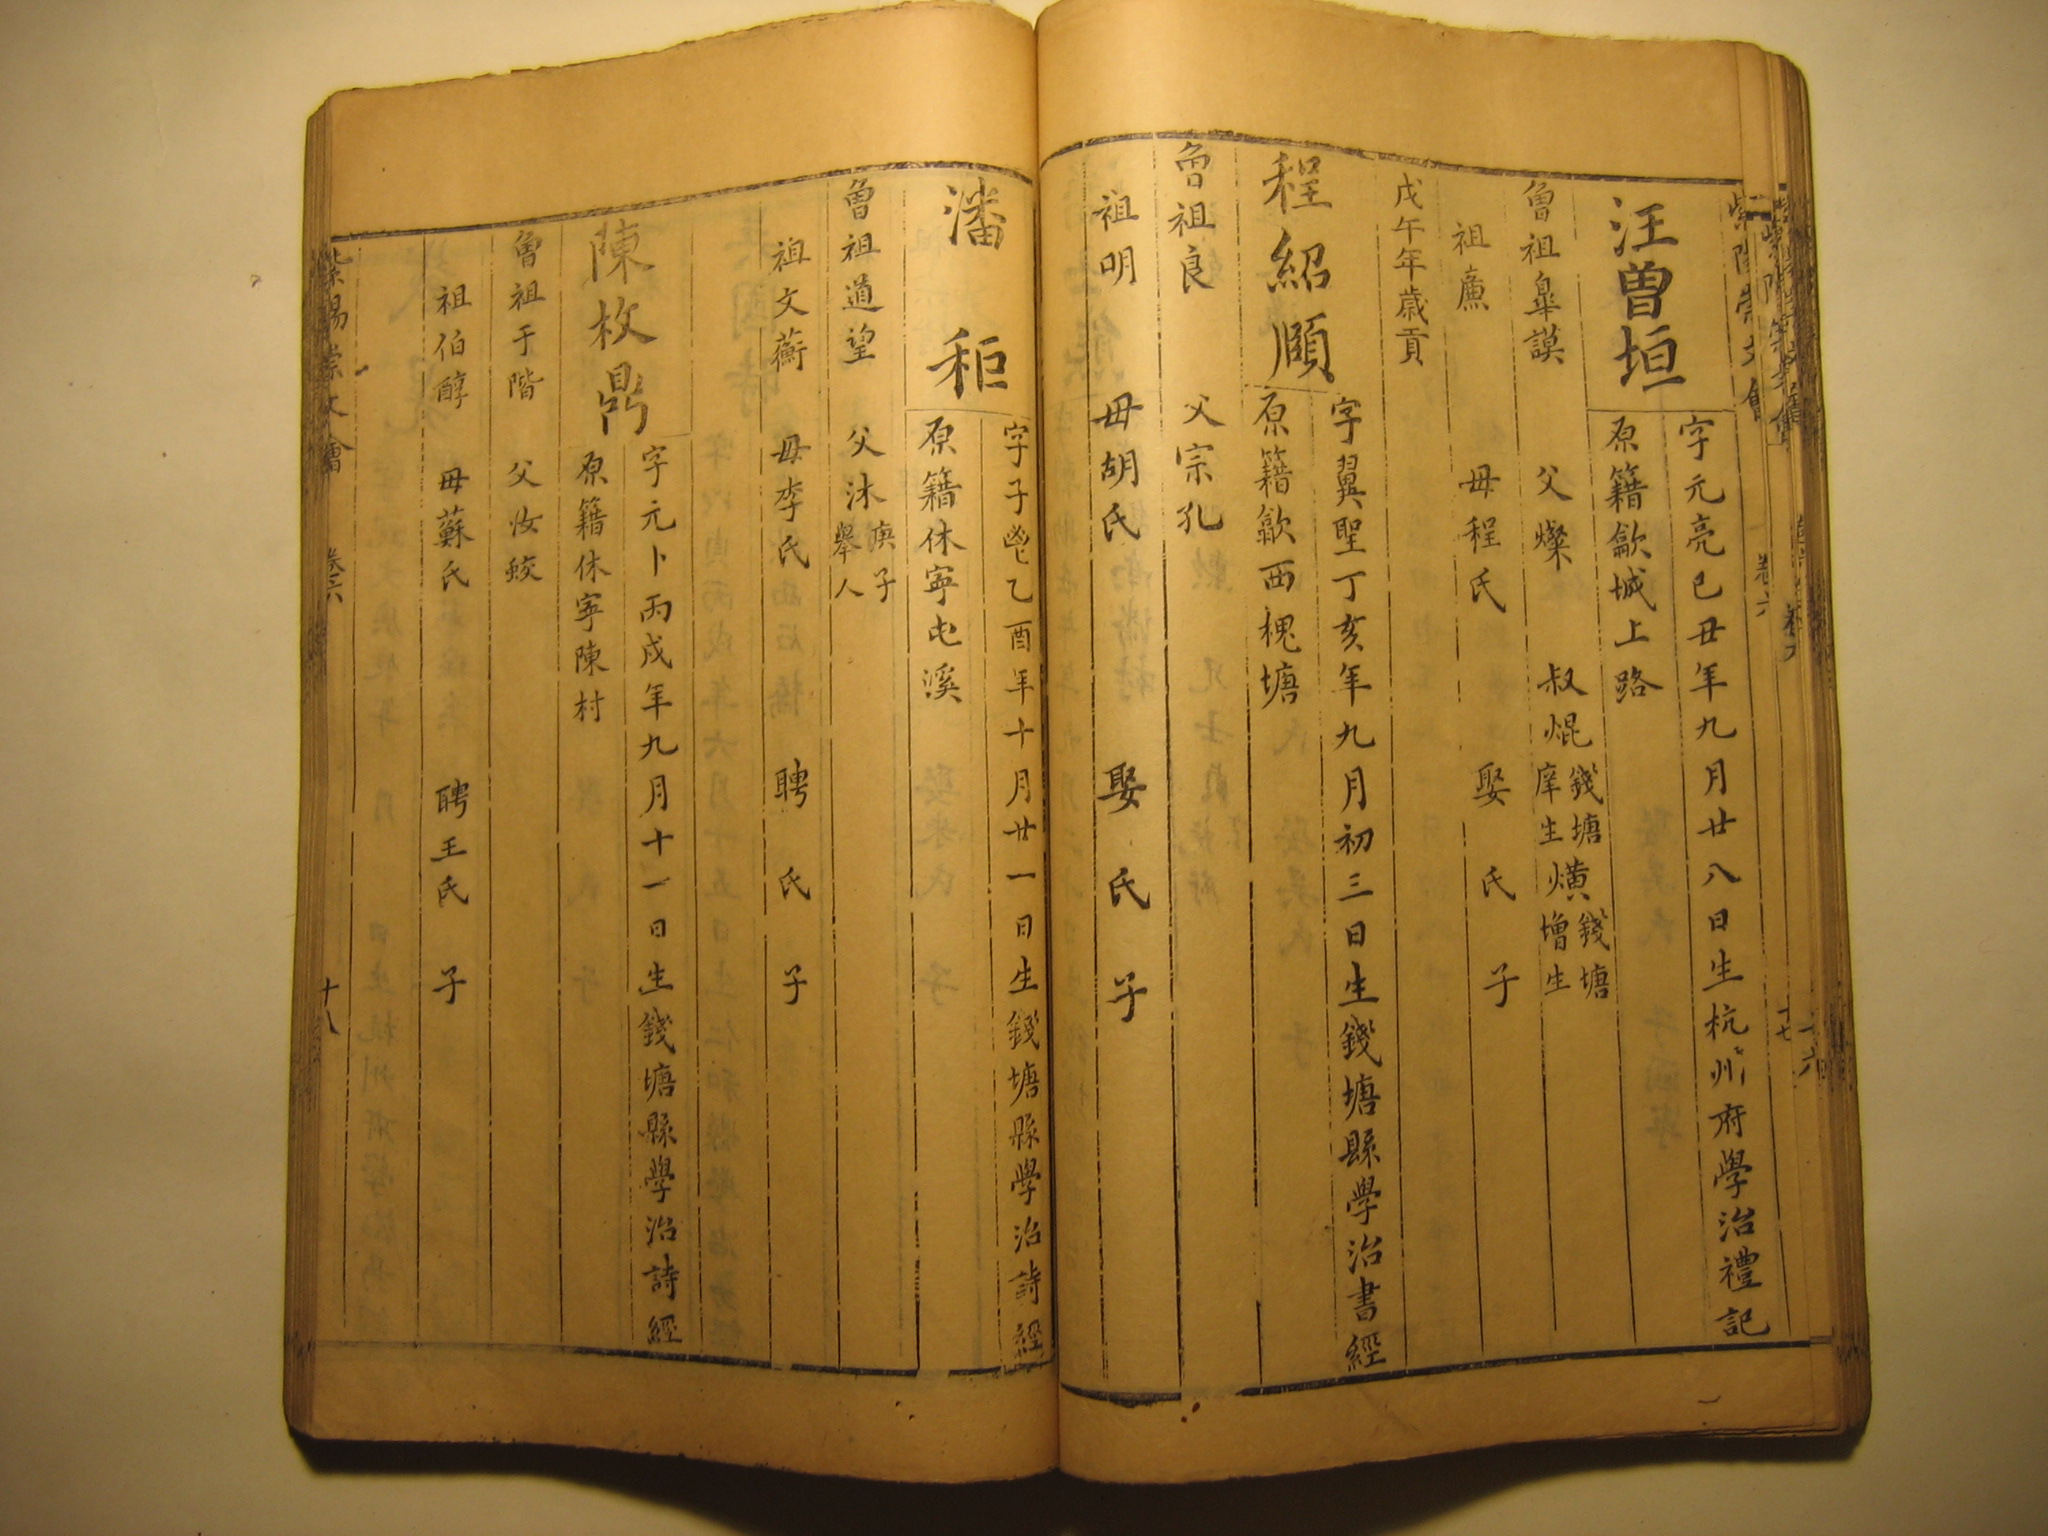 汪曾垣
字元亮己丑年九月廿八日生杭州府學治禮記
原籍歙城上路
曾祖皐謨 父燦 叔焜錢塘庠生 熿錢塘增生
祖 母程氏 娶 氏 子
戊午年歲貢
程紹顒
字翼聖丁亥年九月初三日生錢塘縣學治書經
原籍歙西槐塘
曾祖良 父宗孔
祖明 母胡氏 娶 氏 子
潘柜
字子 己酉年十月廿一日生錢塘縣學治詩經
原籍休寧屯溪
曾祖道望 父沐庚子舉人
祖文蘅 母李氏 聘 氏 子
陳枚鼎
字元卜丙戌年九月十一日生錢塘縣學治詩經
原籍休寧陳村
曾祖于階 父汝
祖伯醇 母蘇氏 聘王氏 子
紫陽崇文會 卷六 十八